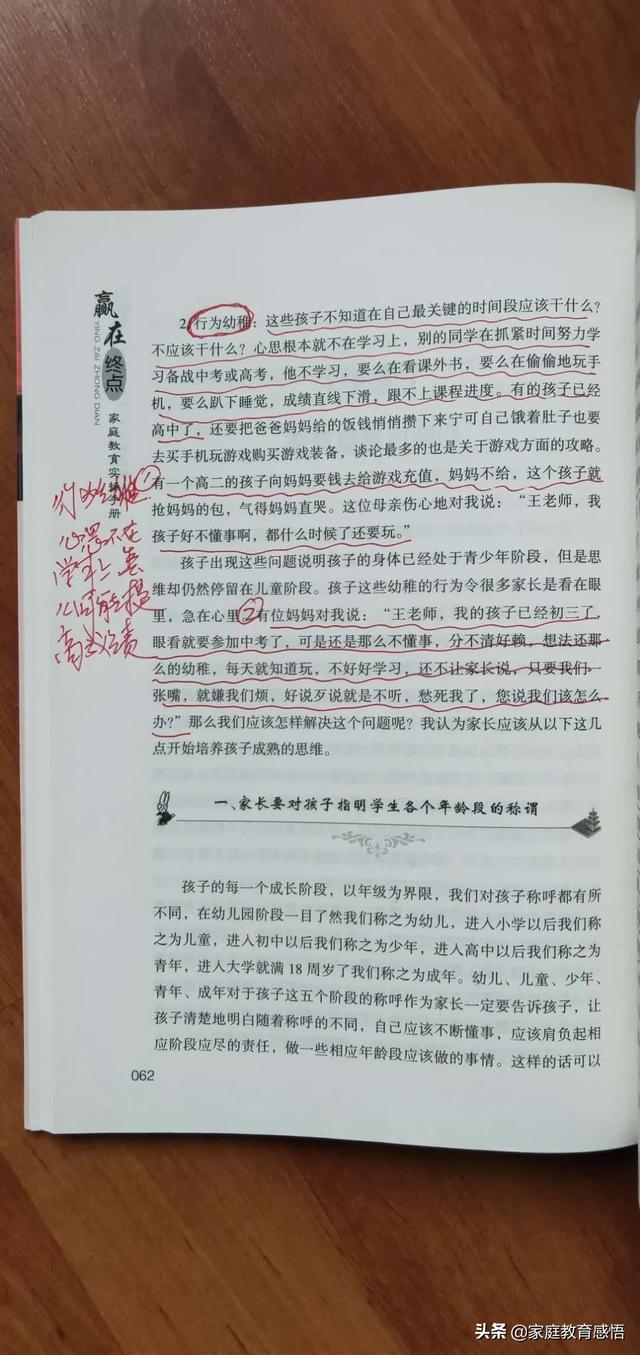 赢在终点
YING ZAI ZHONG DIAN
家庭教育实操手册
2.行为幼稚：这些孩子不知道在自己最关键的时间段应该干什么？
不应该干什么？心思根本就不在学习上，别的同学在抓紧时间努力学
习备战中考或高考，他不学习，要么在看课外书，要么在偷偷地玩手
机，要么趴下睡觉，成绩直线下滑，跟不上课程进度。有的孩子已经
高中了，还要把爸爸妈妈给的饭钱悄悄攒下来宁可自己饿着肚子也要
去买手机玩游戏购买游戏装备，谈论最多的也是关于游戏方面的攻略。
有一个高二的孩子向妈妈要钱去给游戏充值，妈妈不给，这个孩子就
抢妈妈的包，气得妈妈直哭。这位母亲伤心地对我说：“王老师，我
孩子好不懂事啊，都什么时候了还要玩。”
孩子出现这些问题说明孩子的身体已经处于青少年阶段，但是思
维却仍然停留在儿童阶段。孩子这些幼稚的行为令很多家长是看在眼
里，急在心里②有位妈妈对我说：“王老师，我的孩子已经初三了，
眼看就要参加中考了，可是还是那么不懂事，分不清好赖，想法还那
么的幼稚，每天就知道玩，不好好学习，还不让家长说，只要我们一
张嘴，就嫌我们烦，好说歹说就是不听，愁死我了，您说我们该怎么
办？”那么我们应该怎样解决这个问题呢？我认为家长应该从以下这几
点开始培养孩子成熟的思维。
行为幼稚①
心思不在
学习上
一、家长要对孩子指明学生各个年龄段的称谓
孩子的每一个成长阶段，以年级为界限，我们对孩子称呼都有所
不同，在幼儿园阶段一目了然我们称之为幼儿，进入小学以后我们称
之为儿童，进入初中以后我们称之为少年，进入高中以后我们称之为
青年，进入大学就满 18 周岁了我们称之为成年。幼儿、儿童、少年、
青年、成年对于孩子这五个阶段的称呼作为家长一定要告诉孩子，让
孩子清楚地明白随着称呼的不同，自己应该不断懂事，应该肩负起相
应阶段应尽的责任，做一些相应年龄段应该做的事情。这样的话可以
062
头条 @家庭教育感悟